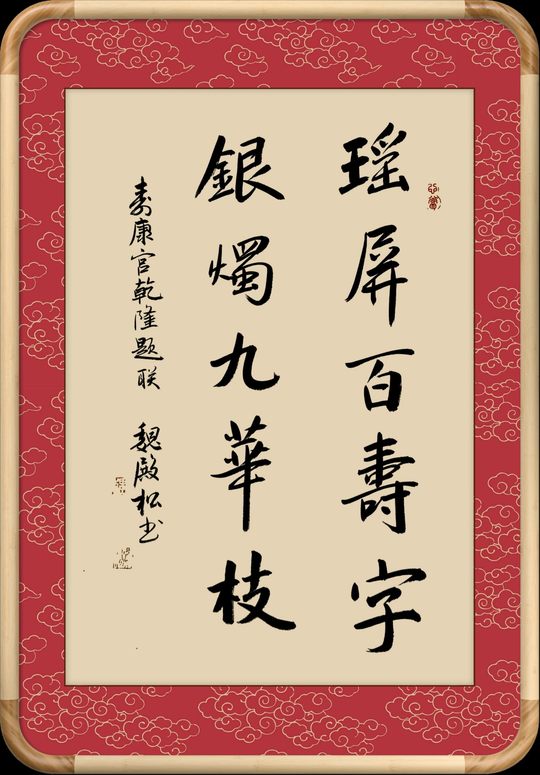 瑶屏百壽字
銀燭九華枝
寿康宫乾隆题联 魏殿松书